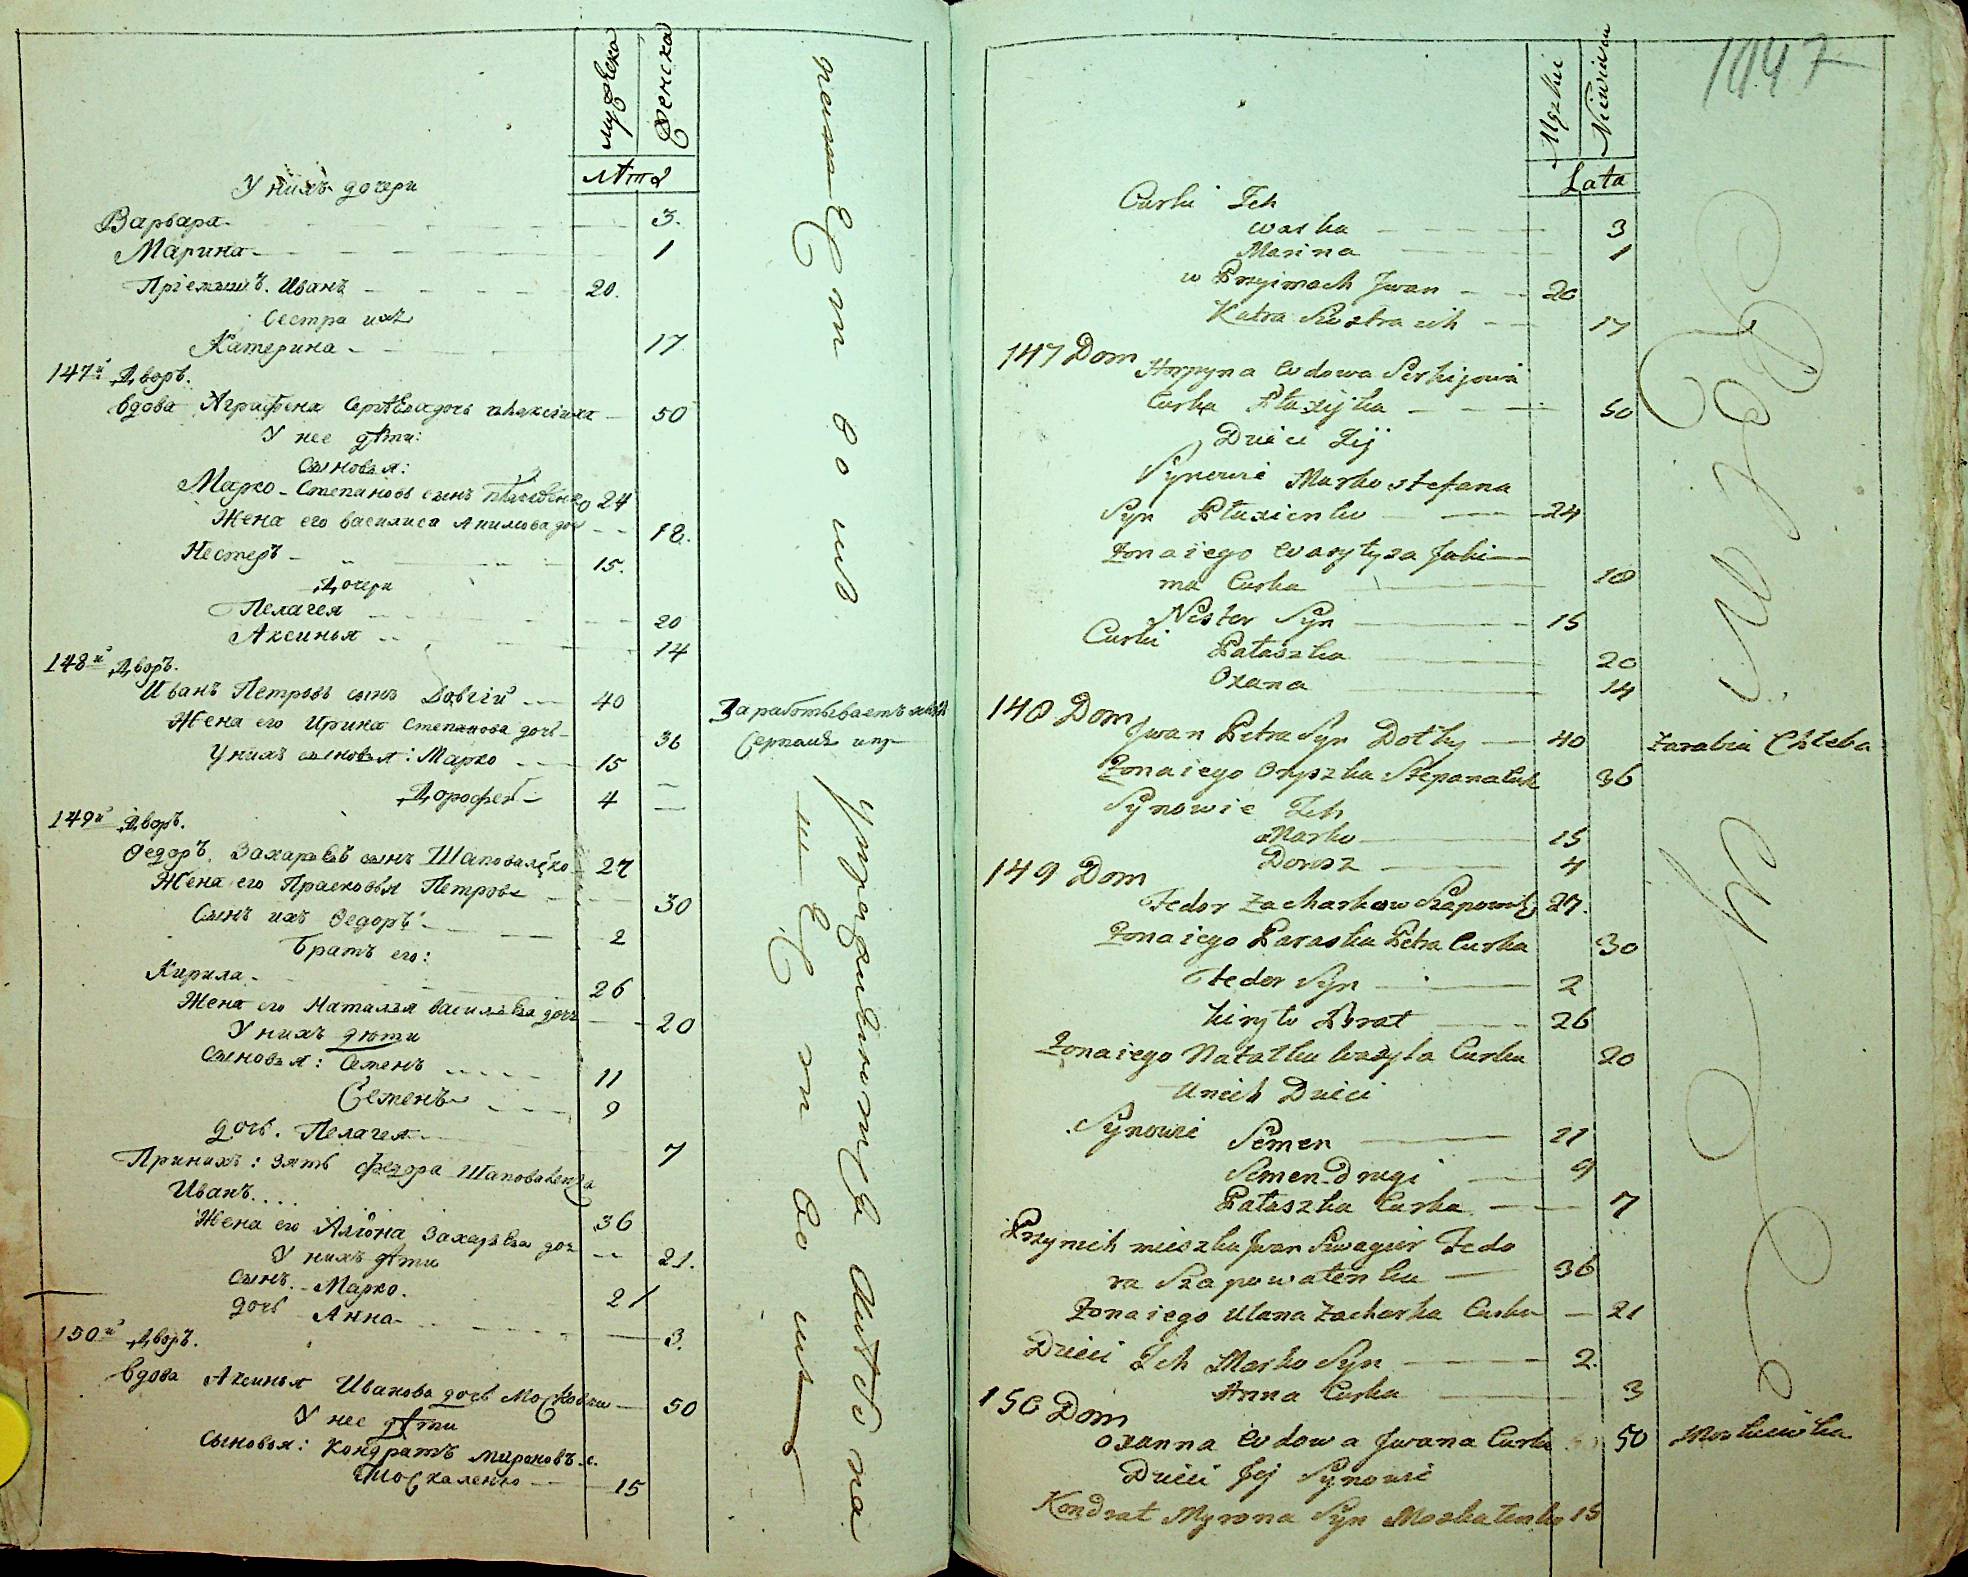 мужеска
женска
лѣта
У нихъ дочери
Варвара 3.
Марина 1
Пріемышъ Иванъ 20.
Сестра ихъ
Катерина 17
147й Дворъ.
вдова Аграфена Сергѣева дочь 50
У нее дѣти:
Сыновья:
Марко Степановъ сынъ 24
Жена его василиса дочь 18.
Нестеръ 15.
Дочери
Пелагея 20
Аксинья 14
148й Дворъ.
Иванъ Петровъ сынъ Довгій 40
Жена его Ирина Степанова дочь 36
У нихъ сыновья: Марко 15
Дорофей 4
149й Дворъ.
Ѳедоръ Захарьевъ сынъ Шаповаленко 27
Жена его Прасковья Петрова 30
Сынъ ихъ Ѳедоръ 2
Братъ его:
Кирила 26
Жена его Наталья Васильева дочь 20
У нихъ дѣти
Сыновья: Семенъ 11
Семенъ 9
дочь Пелагея 7
При нихъ: зять Федора Шаповаленка
Иванъ 36
Жена его Алiона Захарьева дочь 21.
У нихъ дѣти
сынъ Марко 2
дочь Анна 3.
150й Дворъ.
Вдова Аксинья Иванова дочь 50
У нее дѣти
Сыновья: Кондратъ Мироновъ с.
Москаленко 15
Зарабатываетъ
Упражняются
1047
Męzkie
Niewieście
Lata
Curki Ich
Warka 3
Marina 1
w Pryimach Jwan 20
Katra Siostra ich 17
147 Dom
Horpyna Wdowa Serhijowa
Curka 50
Dzieci Jej
Synowie Marko Stefana
Syn 24
Żona iego Wasylysa Jaki=
ma Curka 18
Nester Syn 15
Curki Pałaszka 20
Oxana 14
148 Dom
Jwan Petra Syn Dołhy 40
Żona iego Oryszka Stepana Curk 36
Synowie Ich
Marko 15
Dorosz 4
Zarabia Chleba
149 Dom
Fedor Zacharkow 27.
Żona iego Paraska Petra Curka 30
Fedor Syn 2
Kiryło Brat 26
Żona iego Natałka Wasyla Curka 20
U nich Dzieci
Synowie Semen 11
Semen Drugi 9
Pałaszka Curka 7
Przy nich mieszka Jwan Szwagier Fedo
ra Szapowałenka 36
Żona iego Ulana Zacharka Curka 21
Dzieci Ich Marko Syn 2.
Anna Curka 3
150 Dom
Oxanna Wdowa Jwana Curka 50
Dzieci Jej Synowie
Kondrat Myrona Syn Moskalenko 15